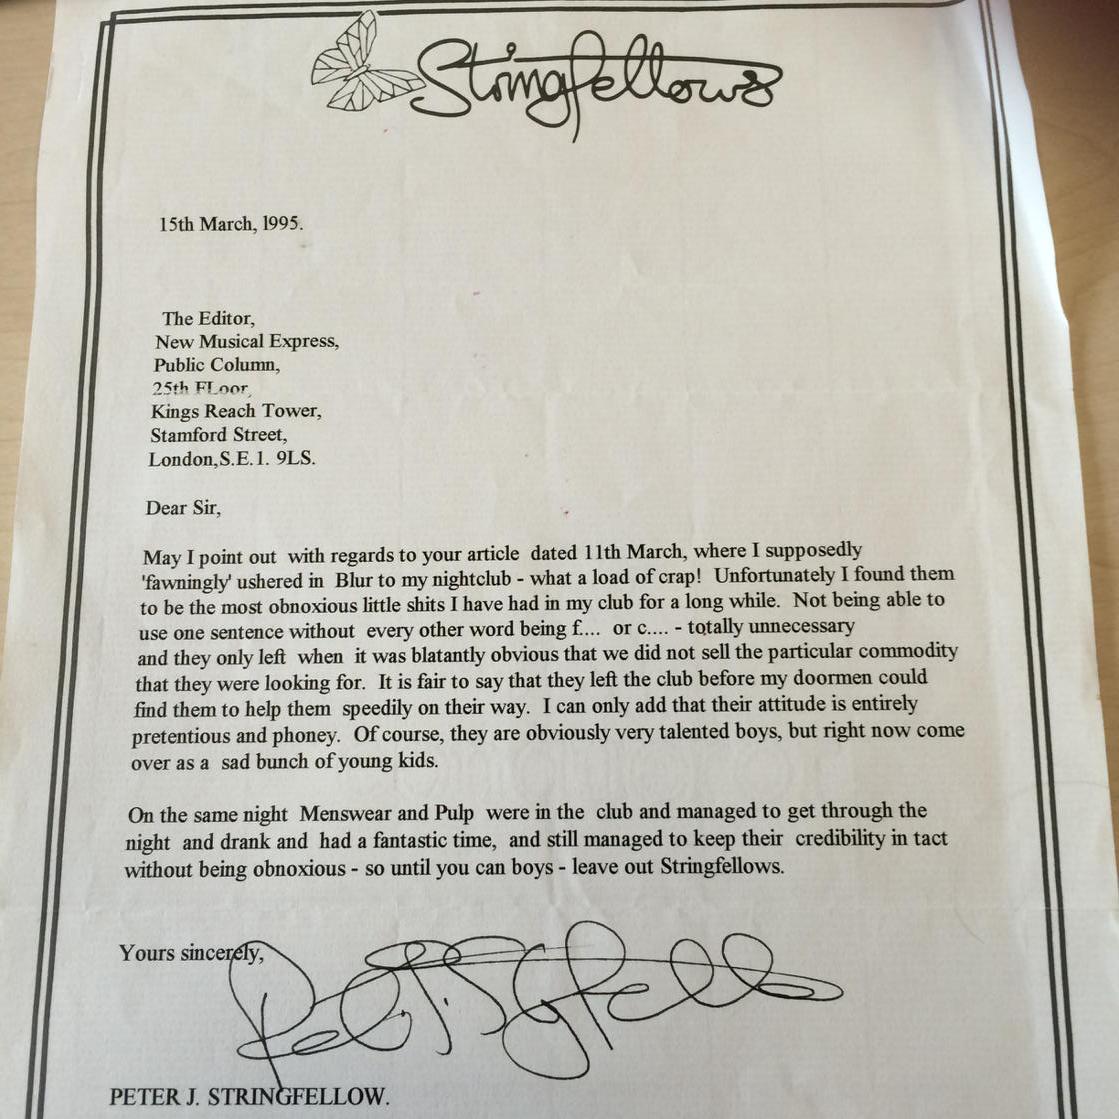 Stringfellows
15th March, 1995.
The Editor,
New Musical Express,
Public Column,
25th FLoor,
Kings Reach Tower,
Stamford Street,
London,S.E.1. 9LS.
Dear Sir,
May I point out with regards to your article dated 11th March, where I supposedly
'fawningly' ushered in Blur to my nightclub - what a load of crap! Unfortunately I found them
to be the most obnoxious little shits I have had in my club for a long while. Not being able to
use one sentence without every other word being f.... or c.... - totally unnecessary
and they only left when it was blatantly obvious that we did not sell the particular commodity
that they were looking for. It is fair to say that they left the club before my doormen could
find them to help them speedily on their way. I can only add that their attitude is entirely
pretentious and phoney. Of course, they are obviously very talented boys, but right now come
over as a sad bunch of young kids.
On the same night Menswear and Pulp were in the club and managed to get through the
night and drank and had a fantastic time, and still managed to keep their credibility in tact
without being obnoxious - so until you can boys - leave out Stringfellows.
Yours sincerely,
Peter J. Stringfellow
PETER J. STRINGFELLOW.